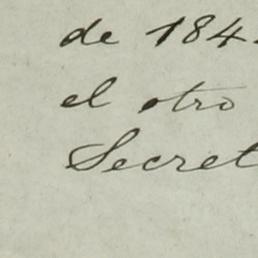 de 184
el otro
Secret